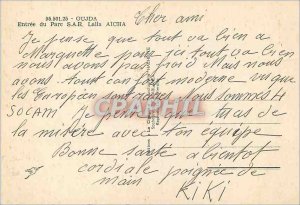 35.501.25 - OUJDA
Entrée du Parc S.A.R. Lalla AICHA
Cher ami
Je pense que tout va bien a
Marquette pour ici tout va bien
nous avons pas froid Mais nous
avons tout confort moderne vu que
les Européen sont rares nous sommes 4
SOCAM Je pense pas mas de
la misère avec ton equipe
Bonne santé a bientot
cordiale poignee de
main KiKi